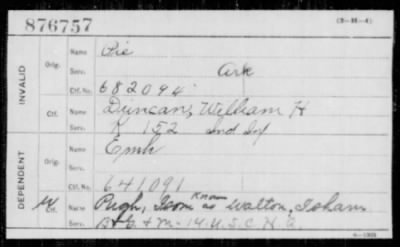 876757
(3-46-4)
INVALID
Orig. Name Rie
Serv. Ark
Ctf. No. 682094
Ctf. Name Duncan, William H
Serv. K 152 Ind Inf
DEPENDENT
Orig. Name
Serv.
Ctf. No. 641091
W Ctf. Name Pugh, Isom Known as Walton, Isham
Serv. 14 U.S.C.H.A.